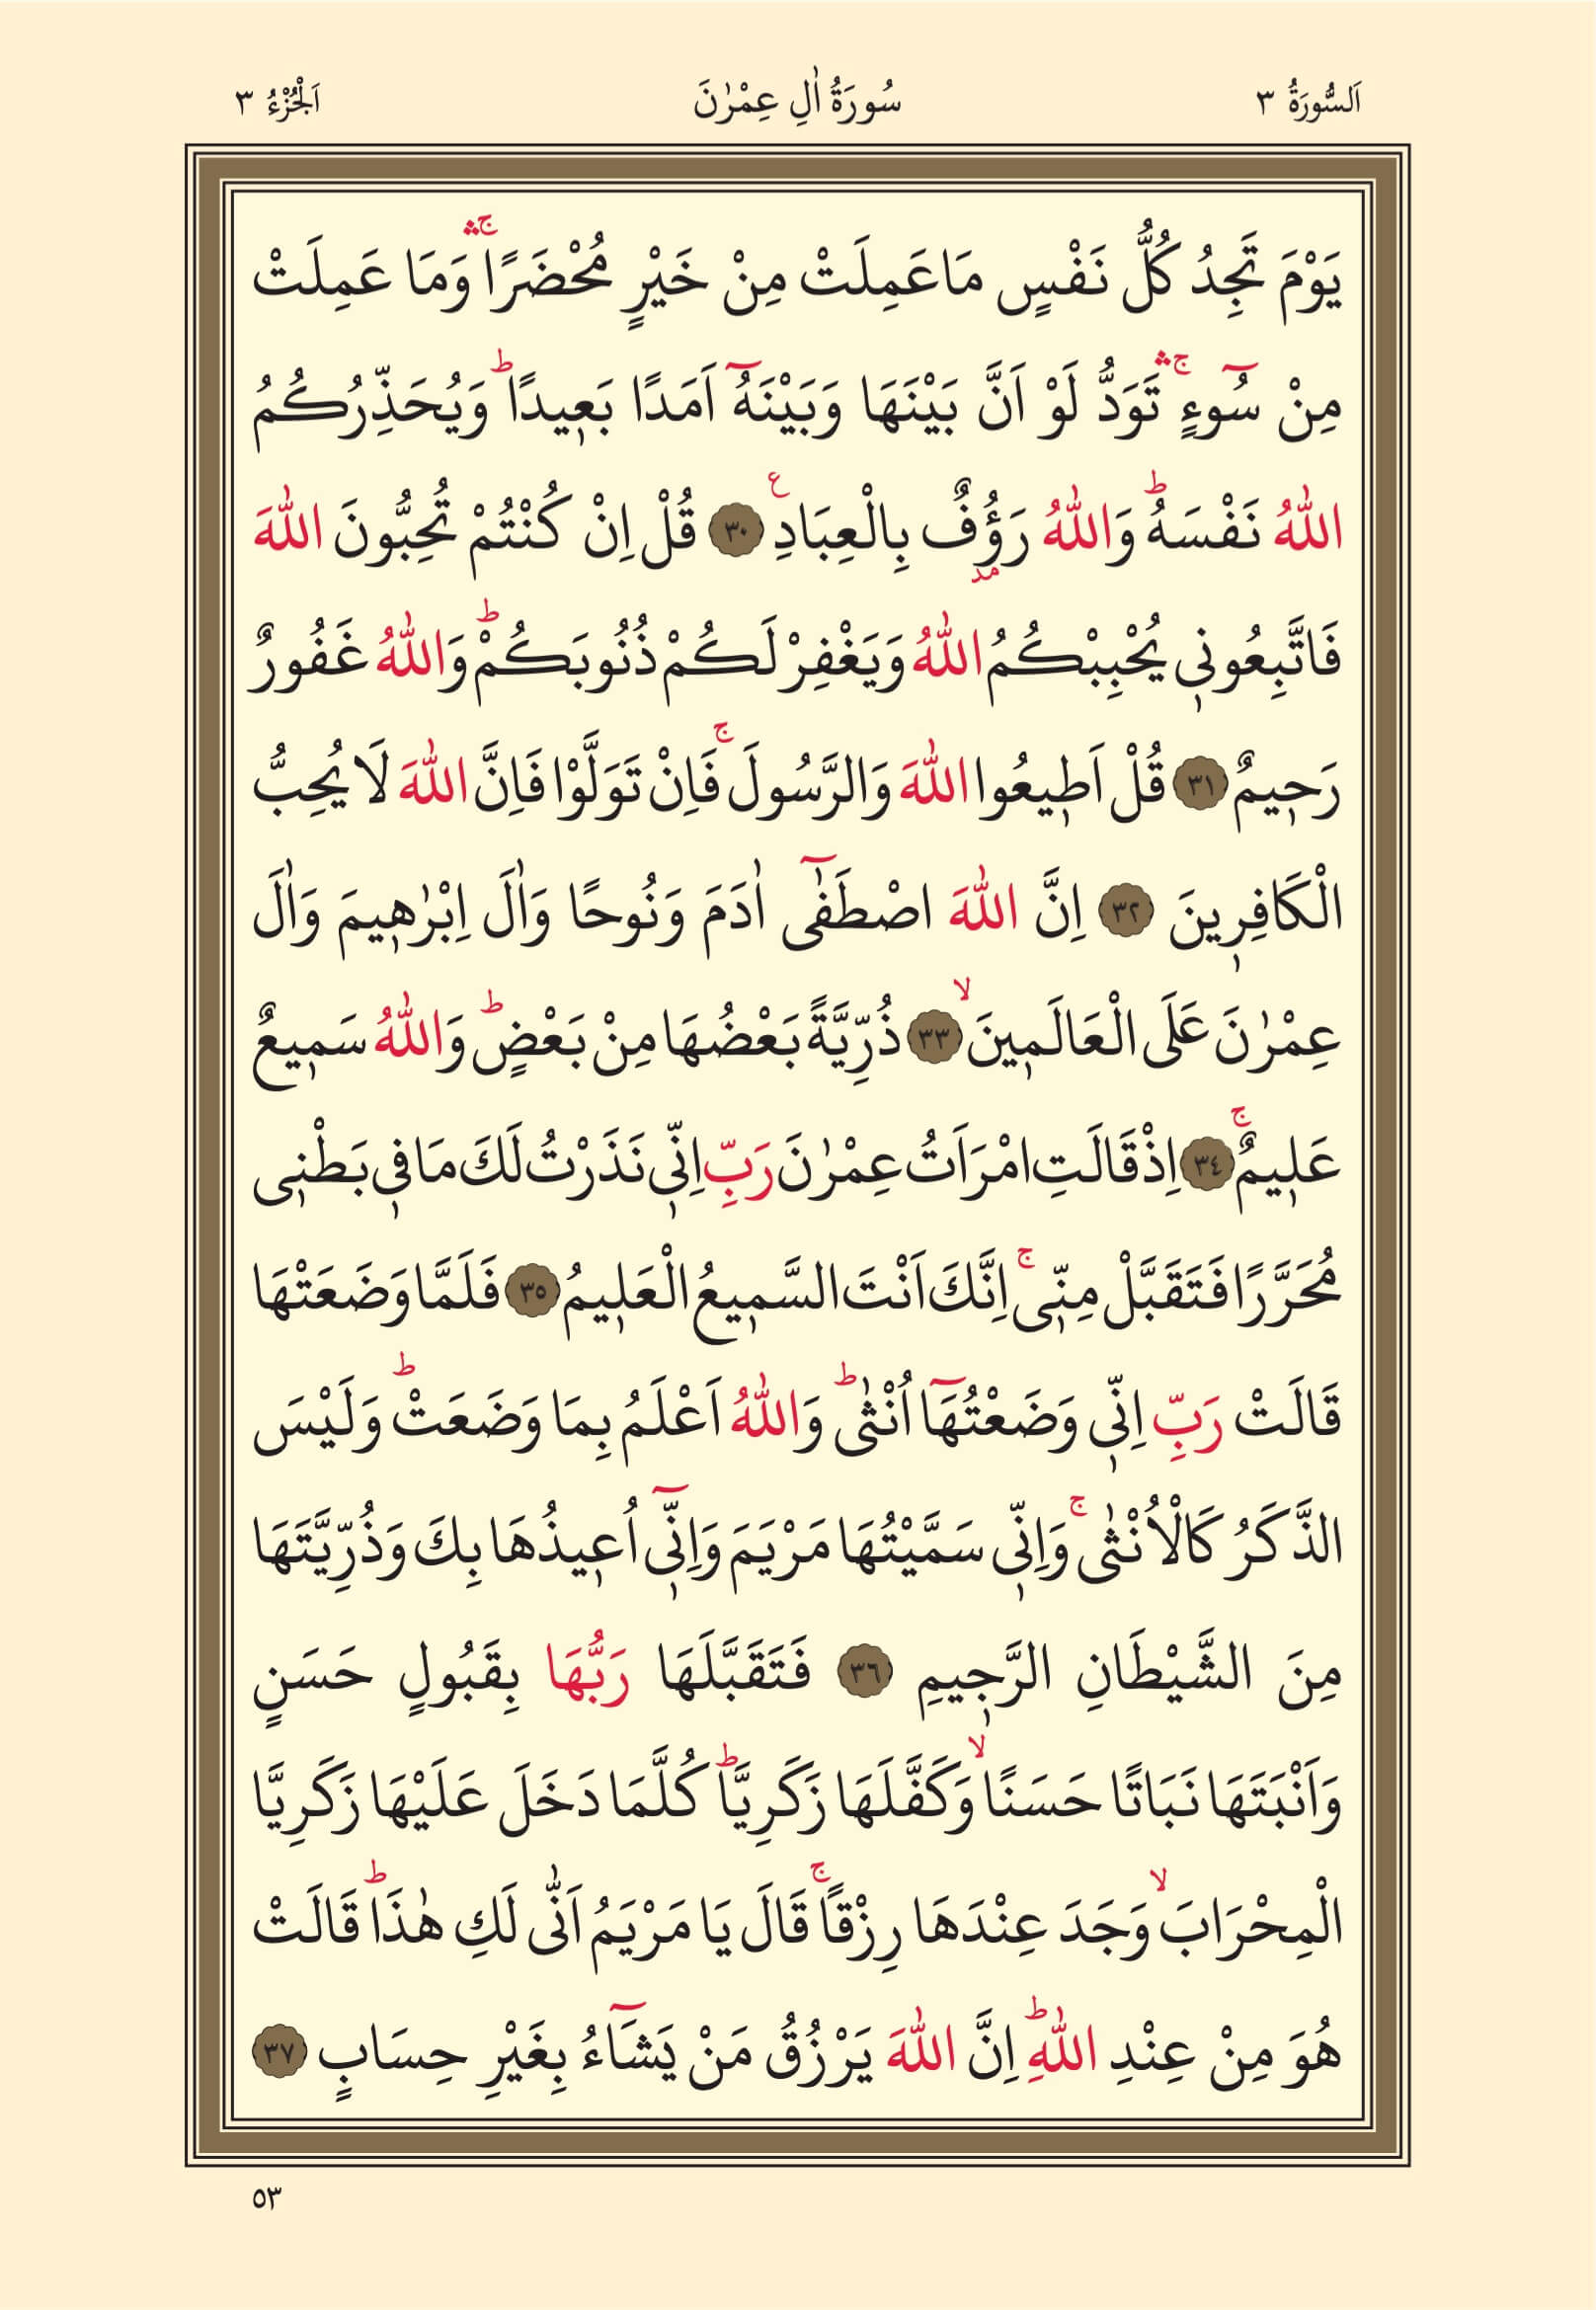 اَلسُّورَةُ ٣
سُورَةُ اٰلِ عِمْرٰنَ
اَلْجُزْءُ ٣
يَوْمَ تَجِدُ كُلُّ نَفْسٍ مَا عَمِلَتْ مِنْ خَيْرٍ مُحْضَرًاۚۛ وَمَا عَمِلَتْ
مِنْ سُٓوءٍۚۛ تَوَدُّ لَوْ اَنَّ بَيْنَهَا وَبَيْنَهُٓ اَمَدًا بَعٖيدًاؕ وَيُحَذِّرُكُمُ
اللّٰهُ نَفْسَهُؕ وَاللّٰهُ رَؤُ۫فٌ بِالْعِبَادِࣖ ﴿٣٠﴾ قُلْ اِنْ كُنْتُمْ تُحِبُّونَ اللّٰهَ
فَاتَّبِعُونٖي يُحْبِبْكُمُ اللّٰهُ وَيَغْفِرْ لَكُمْ ذُنُوبَكُمْؕ وَاللّٰهُ غَفُورٌ
رَحٖيمٌ ﴿٣١﴾ قُلْ اَطٖيعُوا اللّٰهَ وَالرَّسُولَۚ فَاِنْ تَوَلَّوْا فَاِنَّ اللّٰهَ لَا يُحِبُّ
الْكَافِرٖينَ ﴿٣٢﴾ اِنَّ اللّٰهَ اصْطَفٰٓى اٰدَمَ وَنُوحًا وَاٰلَ اِبْرٰهٖيمَ وَاٰلَ
عِمْرٰنَ عَلَى الْعَالَمٖينَۙ ﴿٣٣﴾ ذُرِّيَّةً بَعْضُهَا مِنْ بَعْضٍؕ وَاللّٰهُ سَمٖيعٌ
عَلٖيمٌۚ ﴿٣٤﴾ اِذْ قَالَتِ امْرَاَتُ عِمْرٰنَ رَبِّ اِنّٖي نَذَرْتُ لَكَ مَا فٖي بَطْنٖي
مُحَرَّرًا فَتَقَبَّلْ مِنّٖيۚ اِنَّكَ اَنْتَ السَّمٖيعُ الْعَلٖيمُ ﴿٣٥﴾ فَلَمَّا وَضَعَتْهَا
قَالَتْ رَبِّ اِنّٖي وَضَعْتُهَٓا اُنْثٰىؕ وَاللّٰهُ اَعْلَمُ بِمَا وَضَعَتْؕ وَلَيْسَ
الذَّكَرُ كَالْاُنْثٰىۚ وَاِنّٖي سَمَّيْتُهَا مَرْيَمَ وَاِنّٖٓي اُعٖيذُهَا بِكَ وَذُرِّيَّتَهَا
مِنَ الشَّيْطَانِ الرَّجٖيمِ ﴿٣٦﴾ فَتَقَبَّلَهَا رَبُّهَا بِقَبُولٍ حَسَنٍ
وَاَنْبَتَهَا نَبَاتًا حَسَنًاۙ وَكَفَّلَهَا زَكَرِيَّاؕ كُلَّمَا دَخَلَ عَلَيْهَا زَكَرِيَّا
الْمِحْرَابَۙ وَجَدَ عِنْدَهَا رِزْقًاۚ قَالَ يَا مَرْيَمُ اَنّٰى لَكِ هٰذَاؕ قَالَتْ
هُوَ مِنْ عِنْدِ اللّٰهِؕ اِنَّ اللّٰهَ يَرْزُقُ مَنْ يَشَٓاءُ بِغَيْرِ حِسَابٍ ﴿٣٧﴾
٥٣